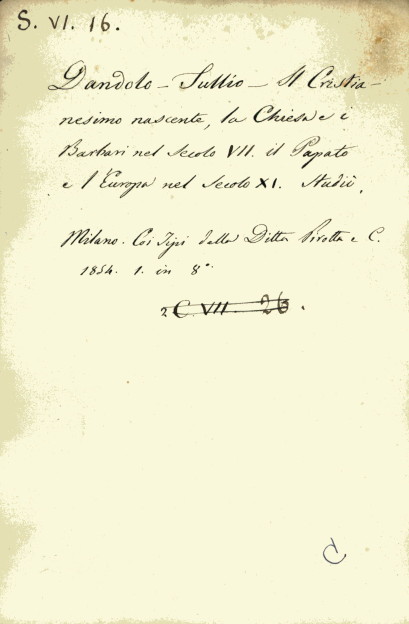 S. VI. 16.
Dandolo - Tullio - Il Cristia-
nesimo nascente, la Chiesa e i
Barbari nel Secolo VII. il Papato
e l'Europa nel Secolo XI. Studii.
Milano. Coi Tipi della Ditta Pirotta e C.
1854. 1. in 8°.
2 C. VII. 26.
C